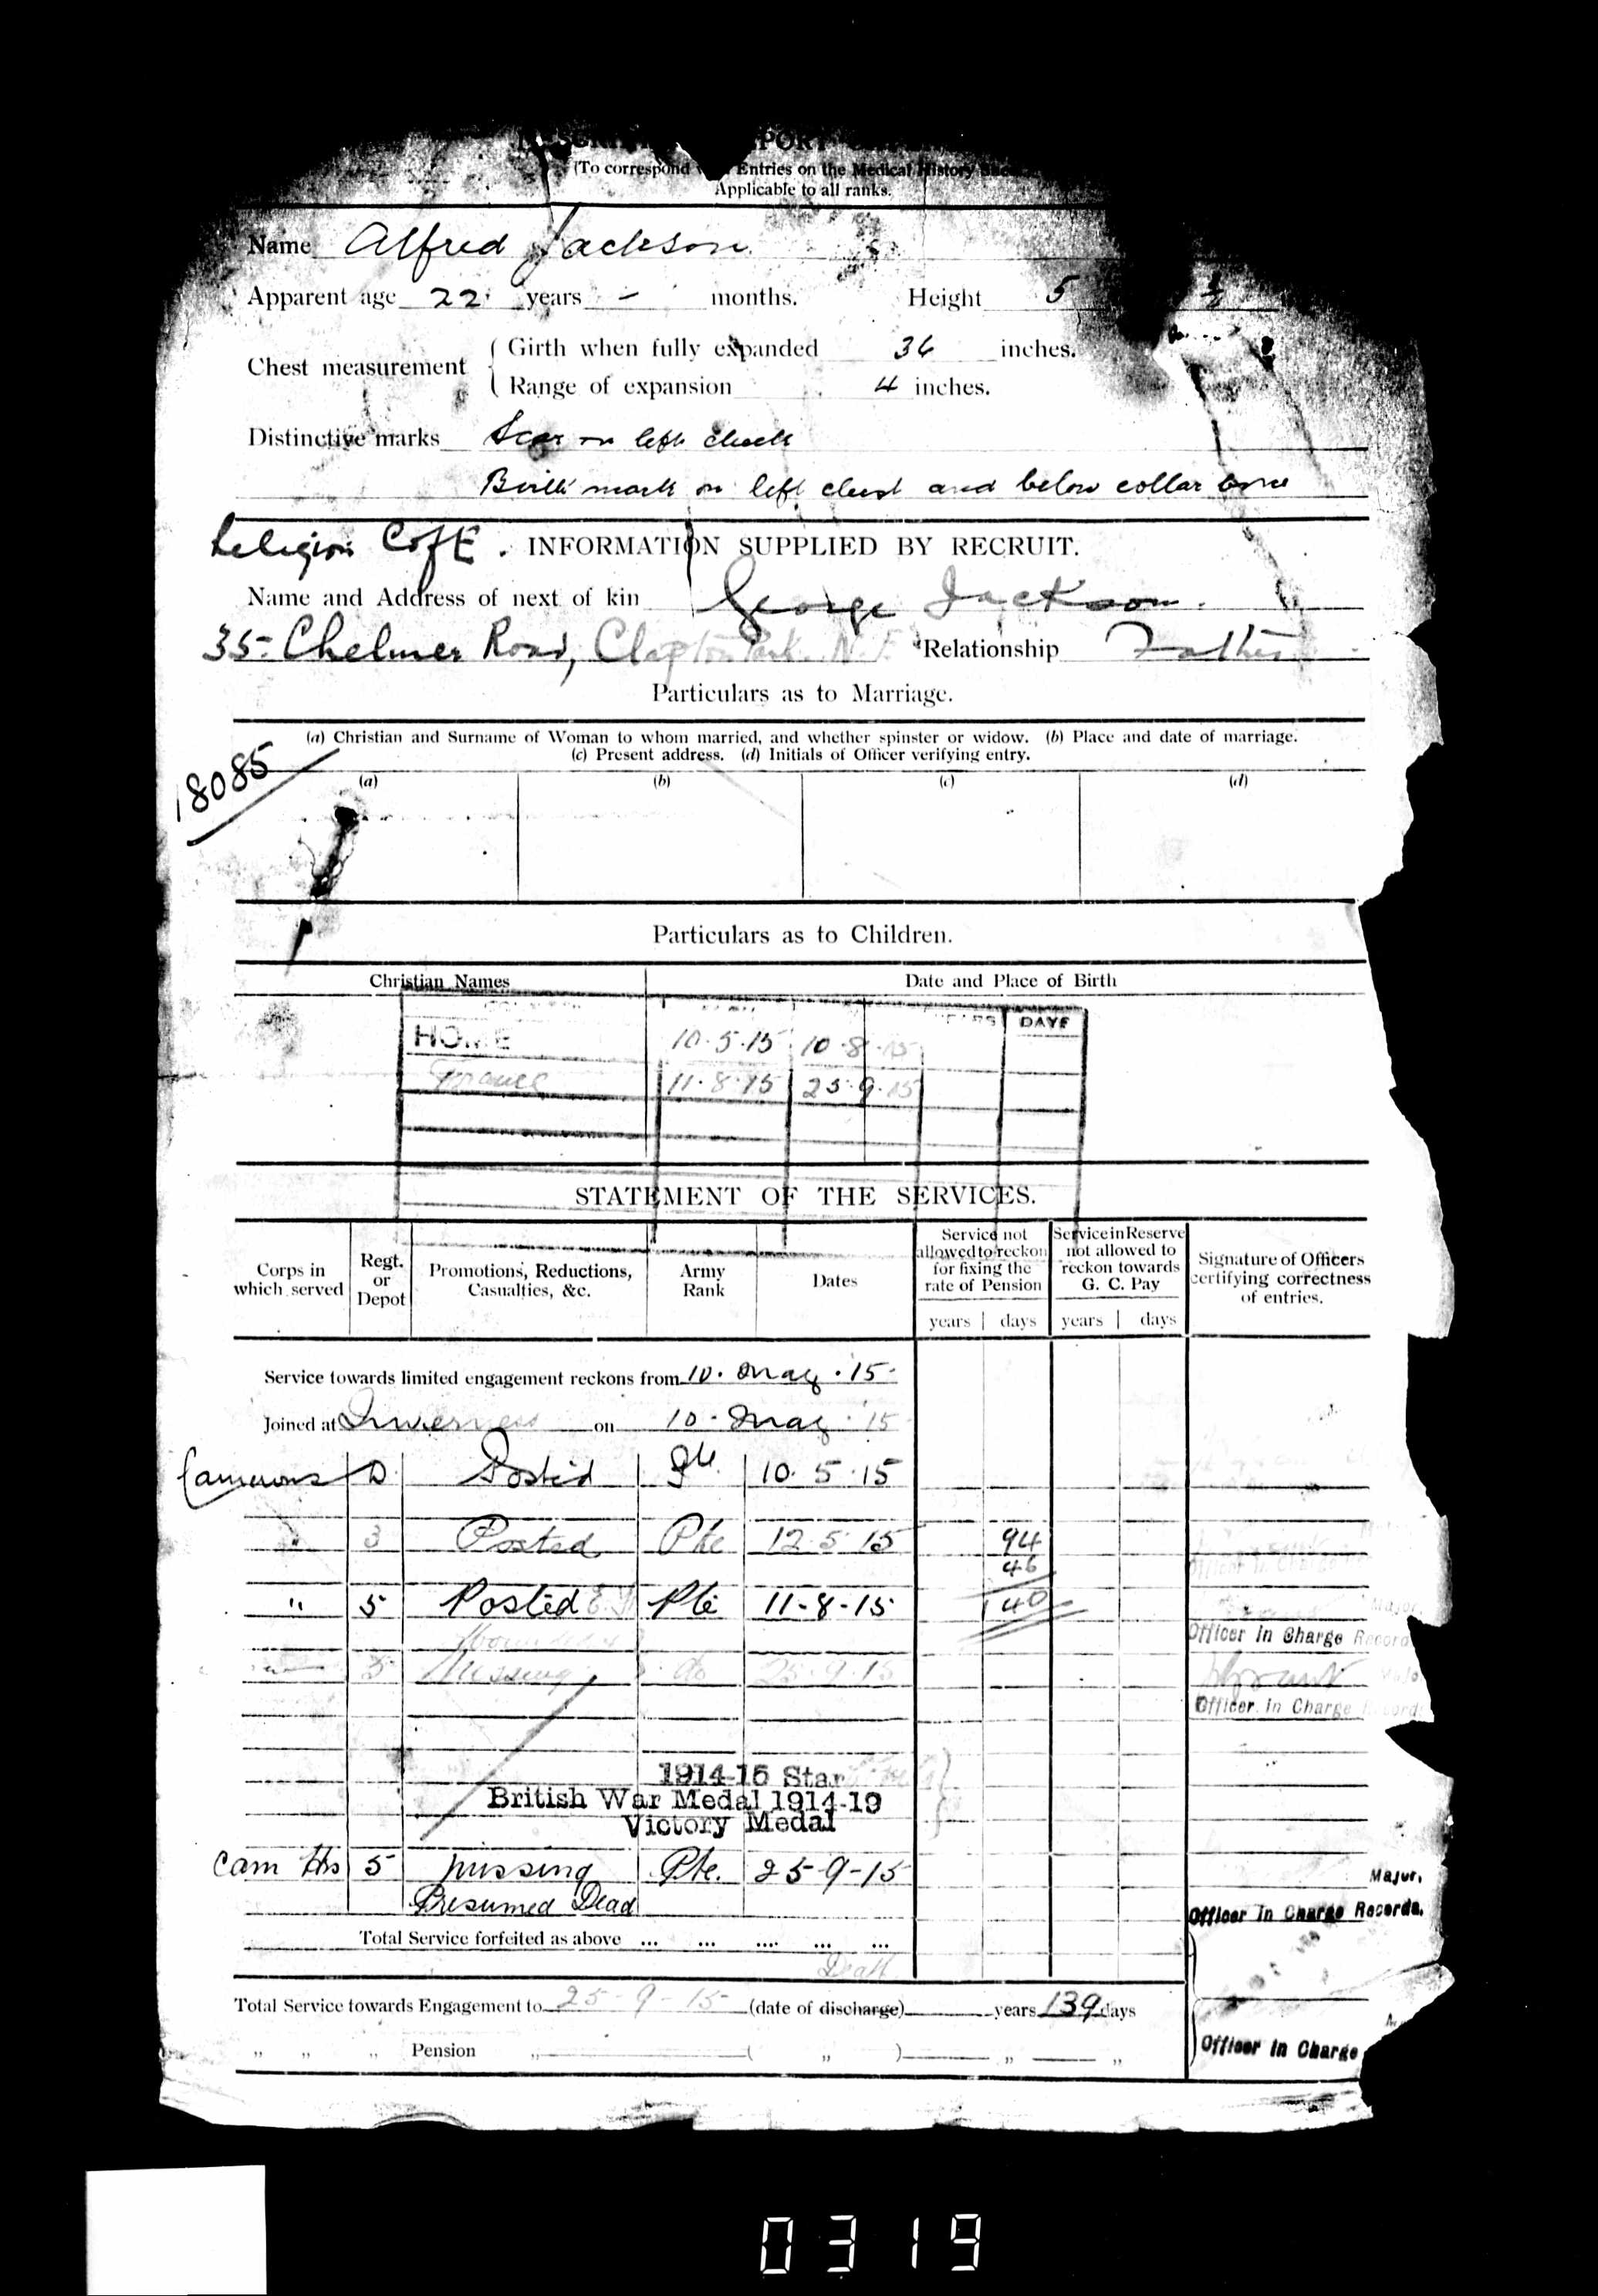 (To correspond Entries on the Medical History
Applicable to all ranks.
Name Alfred Jackson
Apparent age 22 years - months. Height 5 ½
Chest measurement { Girth when fully expanded 36 inches.
{ Range of expansion 4 inches.
Distinctive marks Scar on left cheek
Birth mark on left chest and below collar bone
Religion C of E. INFORMATION SUPPLIED BY RECRUIT.
Name and Address of next of kin George Jackson.
35 Chelmer Road, Clapton Park. N.E. Relationship Father
Particulars as to Marriage.
(a) Christian and Surname of Woman to whom married, and whether spinster or widow. (b) Place and date of marriage.
(c) Present address. (d) Initials of Officer verifying entry.
18085
(a) (b) (c) (d)
Particulars as to Children.
Christian Names Date and Place of Birth
YEARS DAYS
HOME 10.5.15 10.8.15
France 11.8.15 25.9.15
STATEMENT OF THE SERVICES.
Corps in which served Regt. or Depot Promotions, Reductions, Casualties, &c. Army Rank Dates Service not allowed to reckon for fixing the rate of Pension Service in Reserve not allowed to reckon towards G. C. Pay Signature of Officers certifying correctness of entries.
years days years days
Service towards limited engagement reckons from 10. May. 15
Joined at Inverness on 10. May. 15
Camerons D Posted Pte 10.5.15
" 3 Posted Pte 12.5.15 94
46
" 5 Posted Pte 11-8-15 140
Major
Officer in Charge Records
Wounded &
5 Missing do 25.9.15
Officer in Charge Records
1914-15 Star
British War Medal 1914-19
Victory Medal
Cam Hrs 5 missing Pte. 25-9-15
Major,
Presumed Dead
Officer in Charge Records.
Total Service forfeited as above ... ... ... ... ...
Death
Total Service towards Engagement to 25-9-15 (date of discharge) years 139 days
" " " Pension " ( " ) " "
Officer in Charge
0319